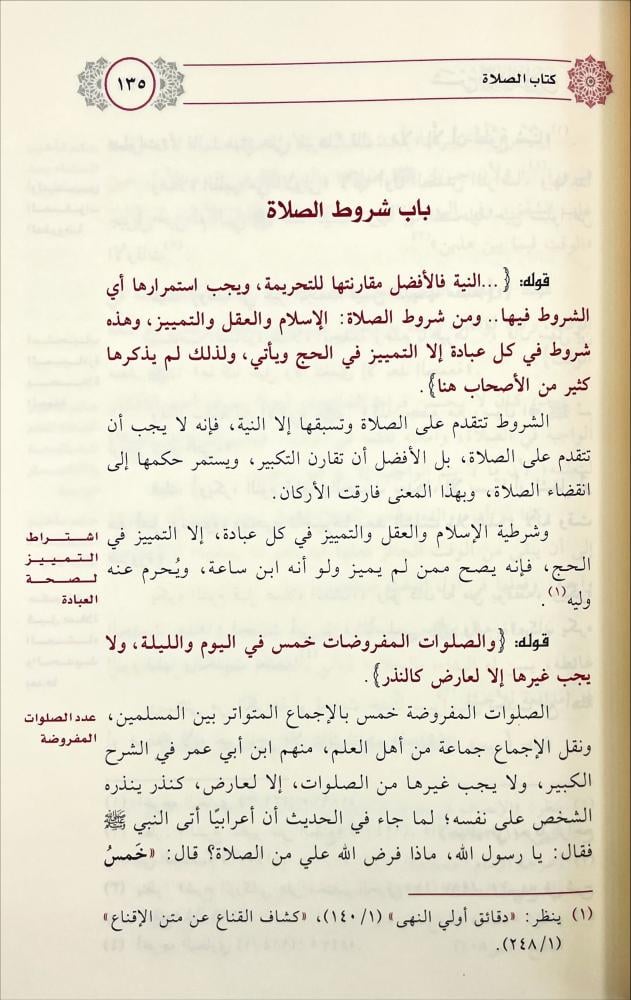 كتاب الصلاة
١٣٥
باب شروط الصلاة
قوله: {...النية فالأفضل مقارنتها للتحريمة، ويجب استمرارها أي
الشروط فيها.. ومن شروط الصلاة: الإسلام والعقل والتمييز، وهذه
شروط في كل عبادة إلا التمييز في الحج ويأتي، ولذلك لم يذكرها
كثير من الأصحاب هنا}.
الشروط تتقدم على الصلاة وتسبقها إلا النية، فإنه لا يجب أن
تتقدم على الصلاة، بل الأفضل أن تقارن التكبير، ويستمر حكمها إلى
انقضاء الصلاة، وبهذا المعنى فارقت الأركان.
وشرطية الإسلام والعقل والتمييز في كل عبادة، إلا التمييز في
الحج، فإنه يصح ممن لم يميز ولو أنه ابن ساعة، ويُحرم عنه
وليه(١).
اشتراط
التمييز
لصحة
العبادة
قوله: {والصلوات المفروضات خمس في اليوم والليلة، ولا
يجب غيرها إلا لعارض كالنذر}.
الصلوات المفروضة خمس بالإجماع المتواتر بين المسلمين،
ونقل الإجماع جماعة من أهل العلم، منهم ابن أبي عمر في الشرح
الكبير، ولا يجب غيرها من الصلوات، إلا لعارض، كنذر ينذره
الشخص على نفسه؛ لما جاء في الحديث أن أعرابيًا أتى النبي ﷺ
فقال: يا رسول الله، ماذا فرض الله علي من الصلاة؟ قال: «خَمسُ
عدد الصلوات
المفروضة
(١) ينظر: «دقائق أولي النهى» (١/١٤٠)، «كشاف القناع عن متن الإقناع»
(١/٢٤٨).